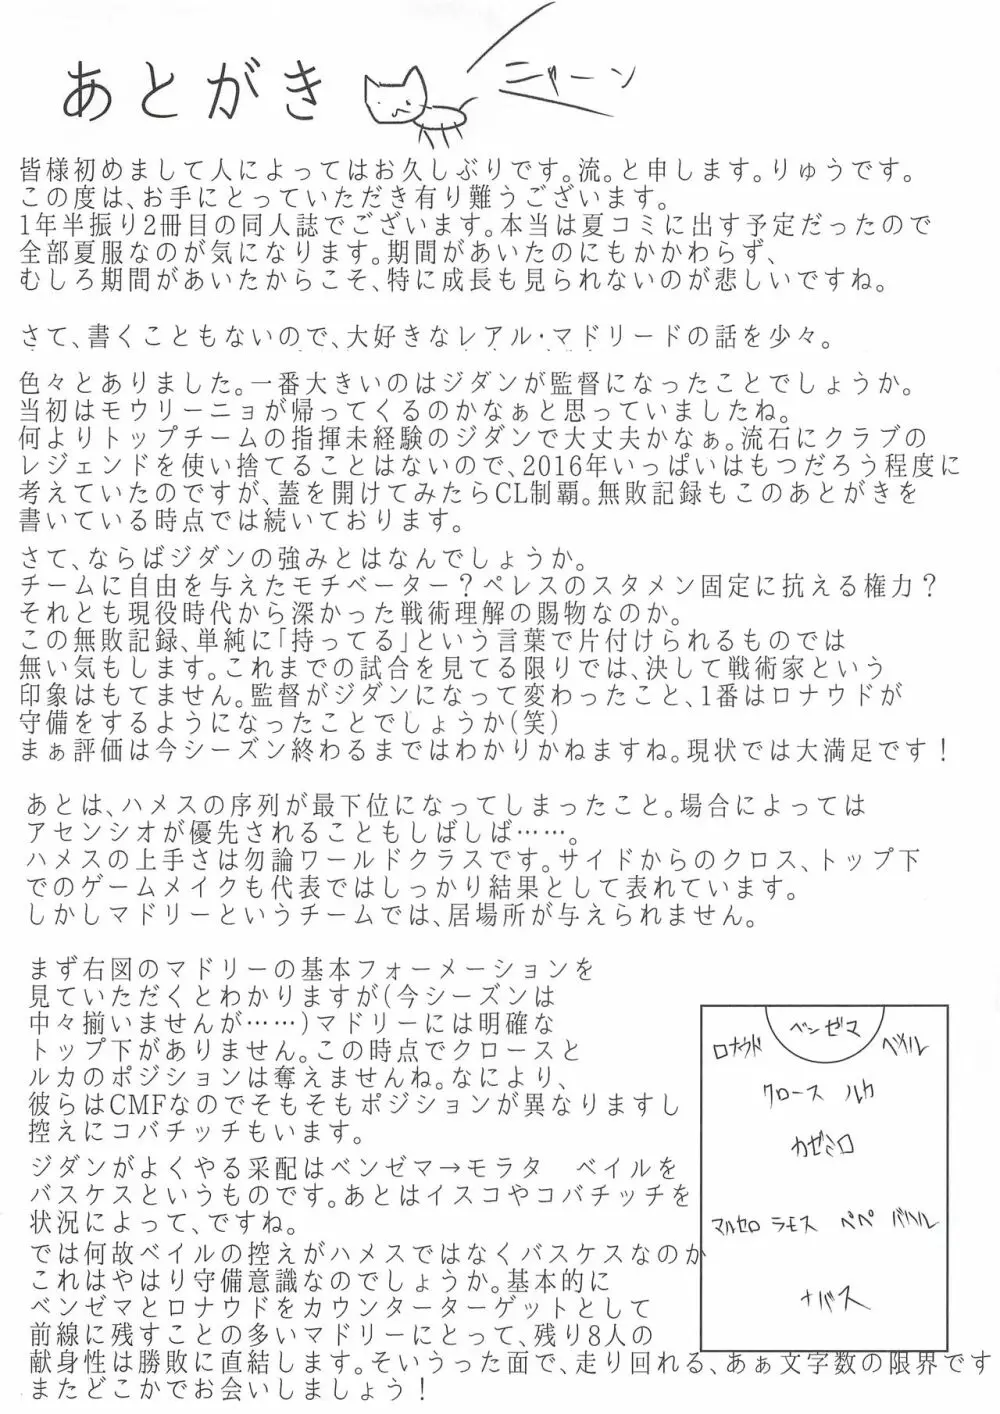 あとがき
ニャーン
皆様初めまして人によってはお久しぶりです。流。と申します。りゅうです。
この度は、お手にとっていただき有り難うございます。
1年半振り2冊目の同人誌でございます。本当は夏コミに出す予定だったので
全部夏服なのが気になります。期間があいたのにもかかわらず、
むしろ期間があいたからこそ、特に成長も見られないのが悲しいですね。
さて、書くこともないので、大好きなレアル・マドリードの話を少々。
色々とありました。一番大きいのはジダンが監督になったことでしょうか。
当初はモウリーニョが帰ってくるのかなぁと思っていましたね。
何よりトップチームの指揮未経験のジダンで大丈夫かなぁ。流石にクラブの
レジェンドを使い捨てることはないので、2016年いっぱいはもつだろう程度に
考えていたのですが、蓋を開けてみたらCL制覇。無敗記録もこのあとがきを
書いている時点では続いております。
さて、ならばジダンの強みとはなんでしょうか。
チームに自由を与えたモチベーター？ペレスのスタメン固定に抗える権力？
それとも現役時代から深かった戦術理解の賜物なのか。
この無敗記録、単純に「持ってる」という言葉で片付けられるものでは
無い気もします。これまでの試合を見てる限りでは、決して戦術家という
印象はもてません。監督がジダンになって変わったこと、1番はロナウドが
守備をするようになったことでしょうか(笑)
まぁ評価は今シーズン終わるまではわかりかねますね。現状では大満足です！
あとは、ハメスの序列が最下位になってしまったこと。場合によっては
アセンシオが優先されることもしばしば……。
ハメスの上手さは勿論ワールドクラスです。サイドからのクロス、トップ下
でのゲームメイクも代表ではしっかり結果として表れています。
しかしマドリーというチームでは、居場所が与えられません。
まず右図のマドリーの基本フォーメーションを
見ていただくとわかりますが(今シーズンは
中々揃いませんが……)マドリーには明確な
トップ下がありません。この時点でクロースと
ルカのポジションは奪えませんね。なにより、
彼らはCMFなのでそもそもポジションが異なりますし
控えにコバチッチもいます。
ジダンがよくやる采配はベンゼマ→モラタ　ベイルを
バスケスというものです。あとはイスコやコバチッチを
状況によって、ですね。
では何故ベイルの控えがハメスではなくバスケスなのか
これはやはり守備意識なのでしょうか。基本的に
ベンゼマとロナウドをカウンターターゲットとして
前線に残すことの多いマドリーにとって、残り8人の
献身性は勝敗に直結します。そういった面で、走り回れる、あぁ文字数の限界です
またどこかでお会いしましょう！
ベンゼマ
ロナウド　ベイル
クロース　ルカ
カゼミロ
マルセロ　ラモス　ペペ　バハル
ナバス